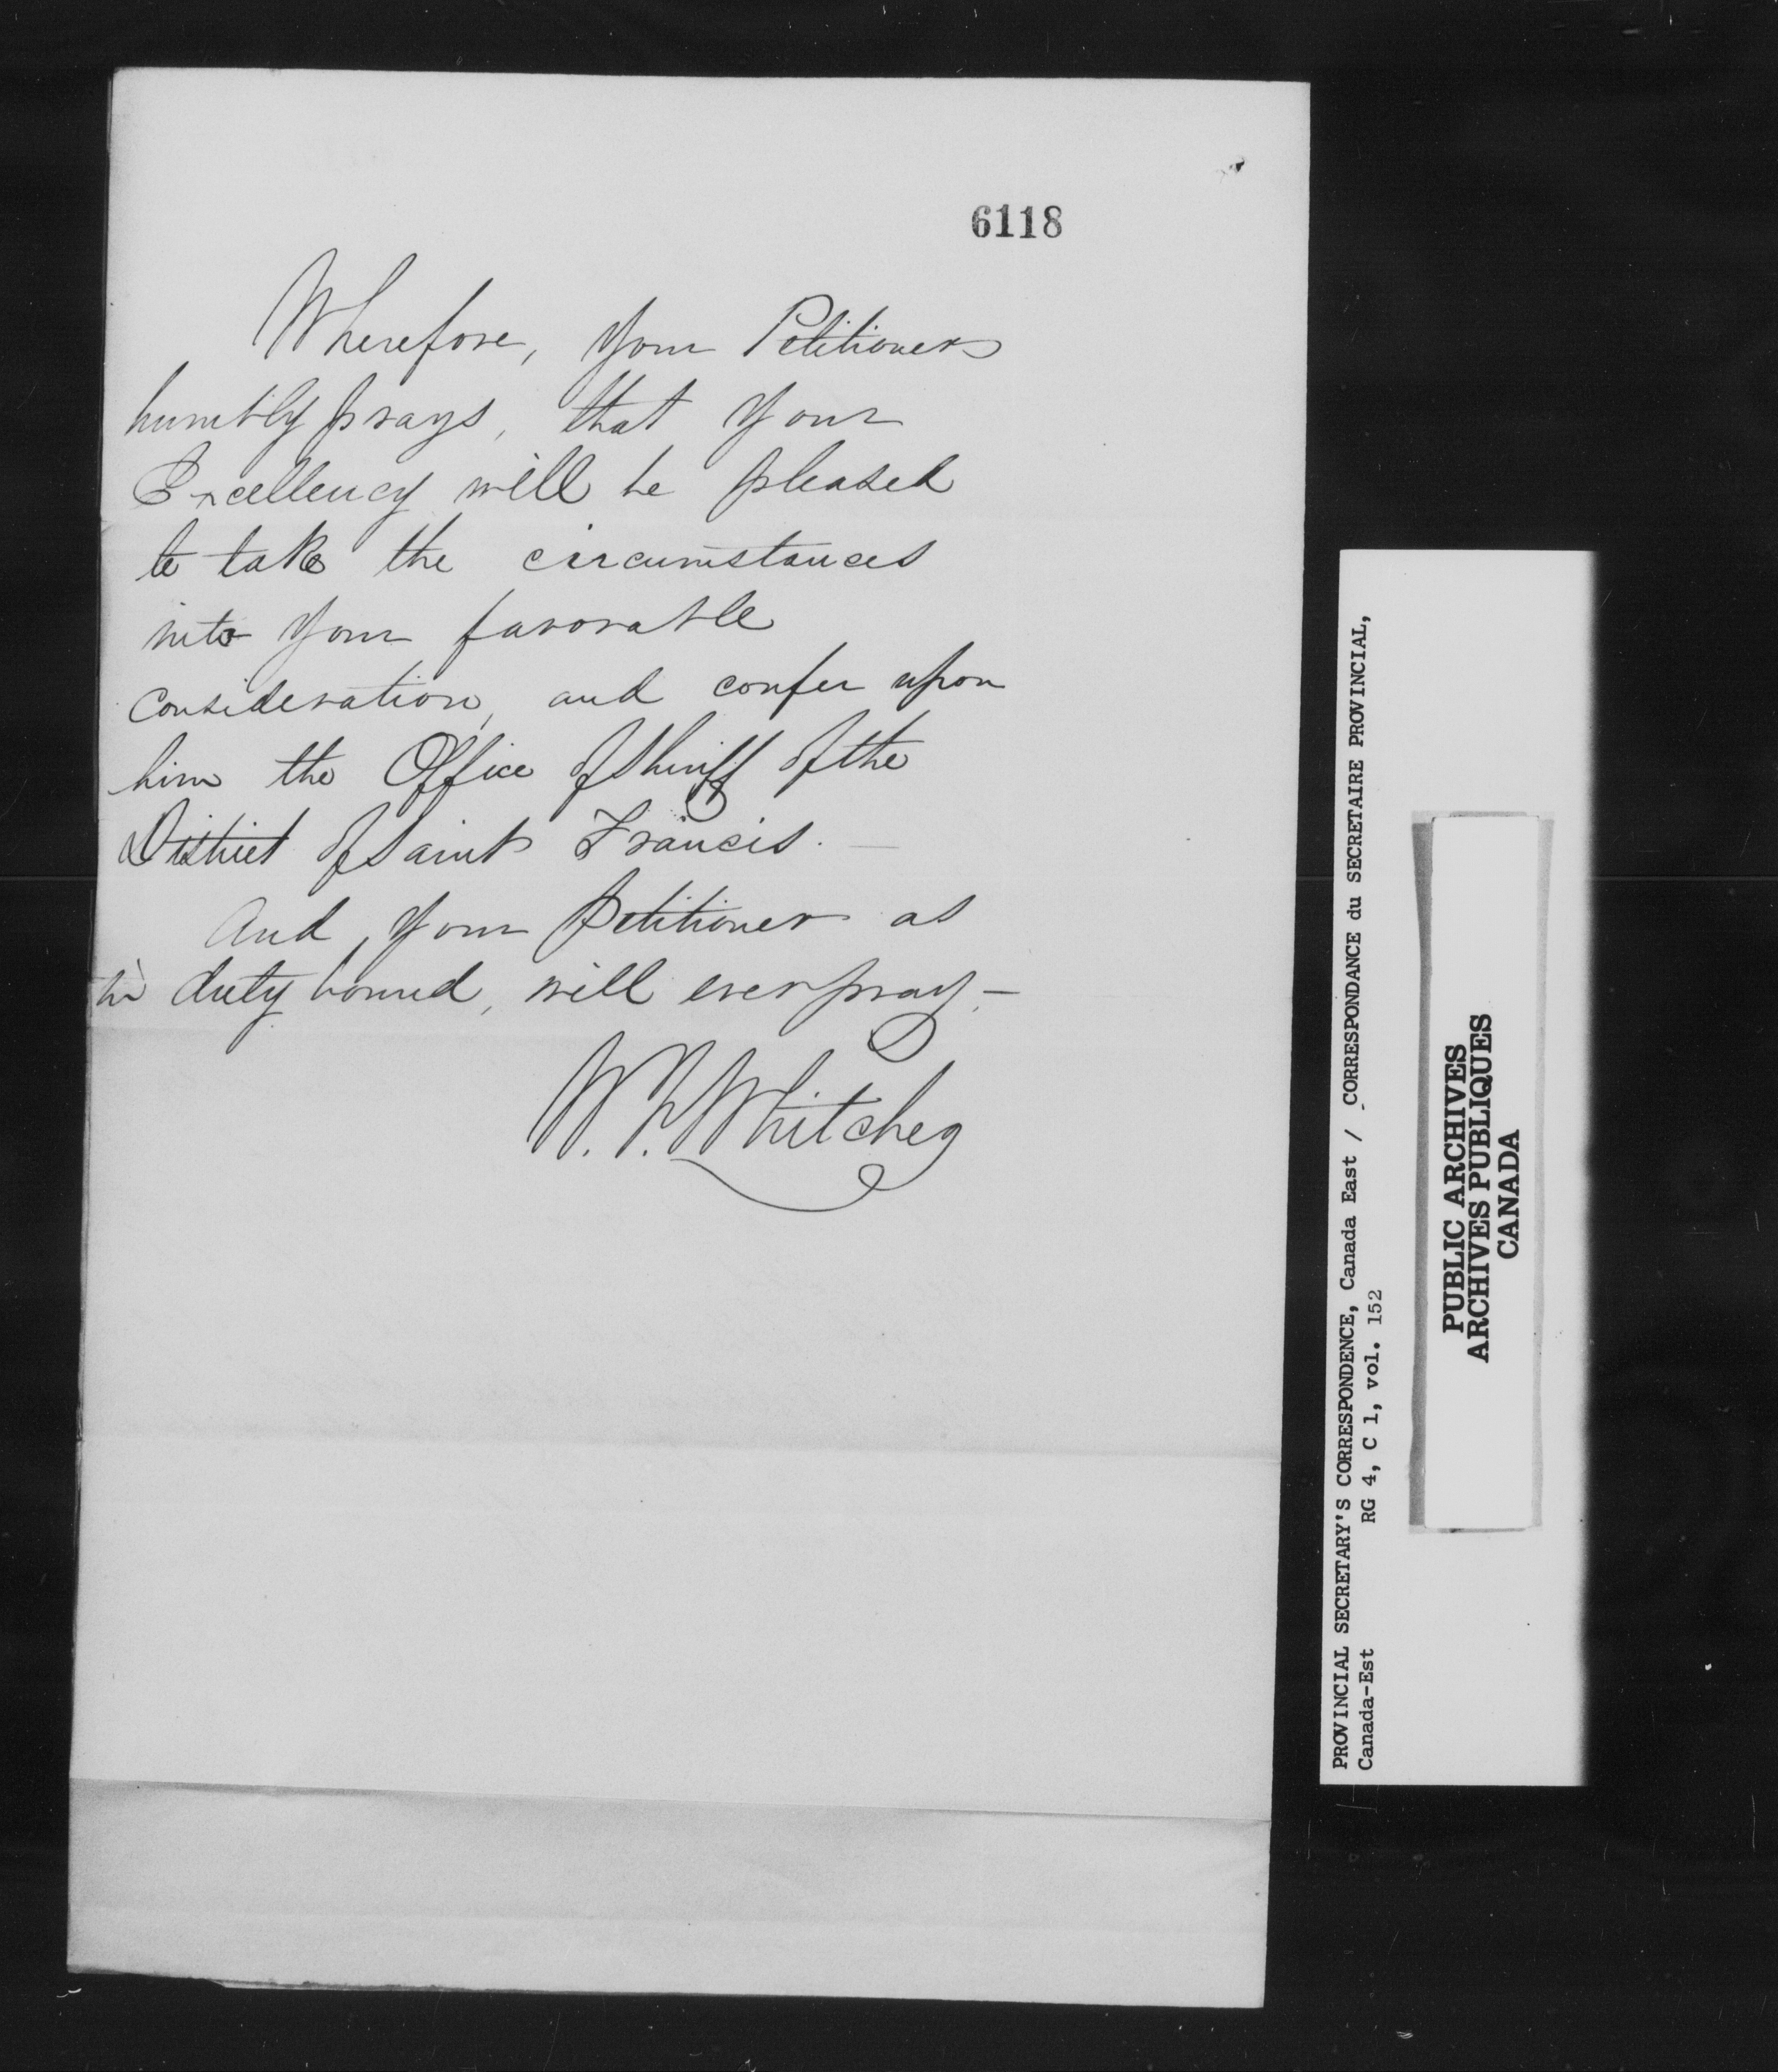 6118
Wherefore, Your Petitioner
humbly prays, that Your
Excellency will be pleased
to take the circumstances
into Your favorable
consideration, and confer upon
him the Office of Sheriff of the
District of Saint Francis. —
And, Your Petitioner as
in duty bound, will ever pray. —
W. F. Whitcher
PROVINCIAL SECRETARY'S CORRESPONDENCE, Canada East / CORRESPONDANCE du SECRETAIRE PROVINCIAL,
Canada-Est RG 4, C 1, vol. 152
PUBLIC ARCHIVES
ARCHIVES PUBLIQUES
CANADA